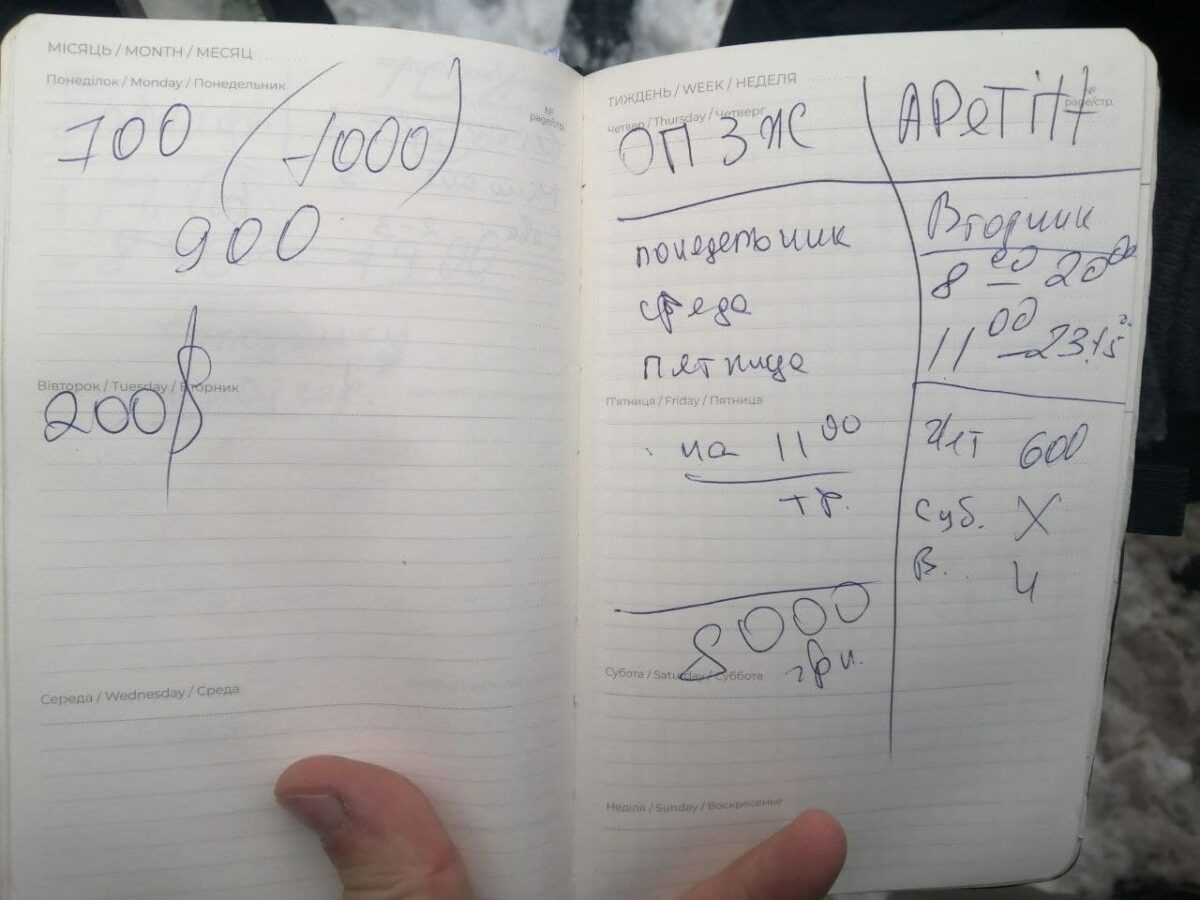 МІСЯЦЬ / MONTH / МЕСЯЦ
Понеділок / Monday / Понедельник
№
page/стр.
700 (1000)
900
Вівторок / Tuesday / Вторник
200$
Середа / Wednesday / Среда
ТИЖДЕНЬ / WEEK / НЕДЕЛЯ
Четвер / Thursday / Четверг
№
page/стр.
ОПЗЖ
понедельник
среда
пятница
П'ятниця / Friday / Пятница
на 11 00
тр.
8000
грн.
Субота / Saturday / Суббота
Неділя / Sunday / Воскресенье
Вторник
8 00 – 20 00
11 00 – 23.15
Чет 600
Суб. X
В. Ч